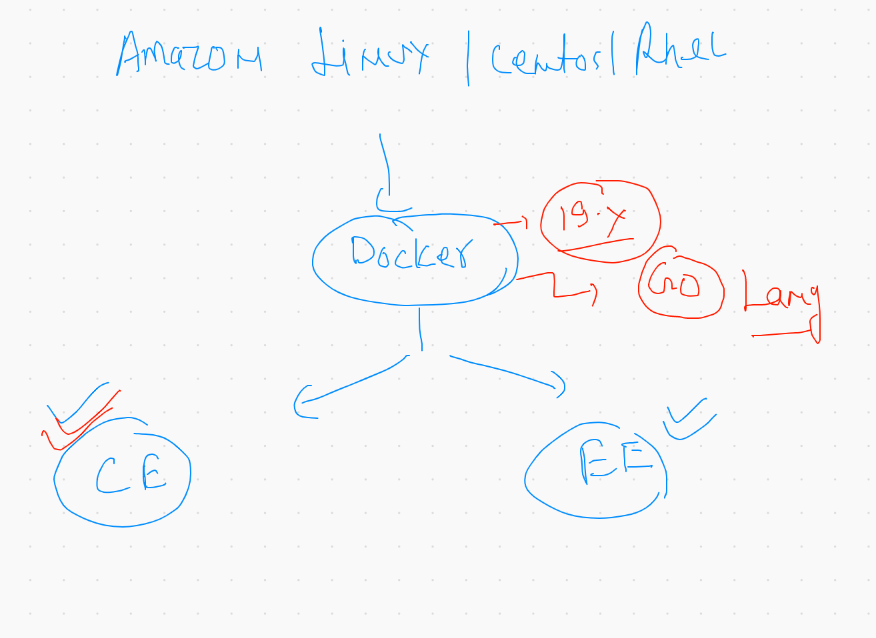 Amazon Linux | Centos | Rhel
19.x
Docker
GO Lang
CE
EE